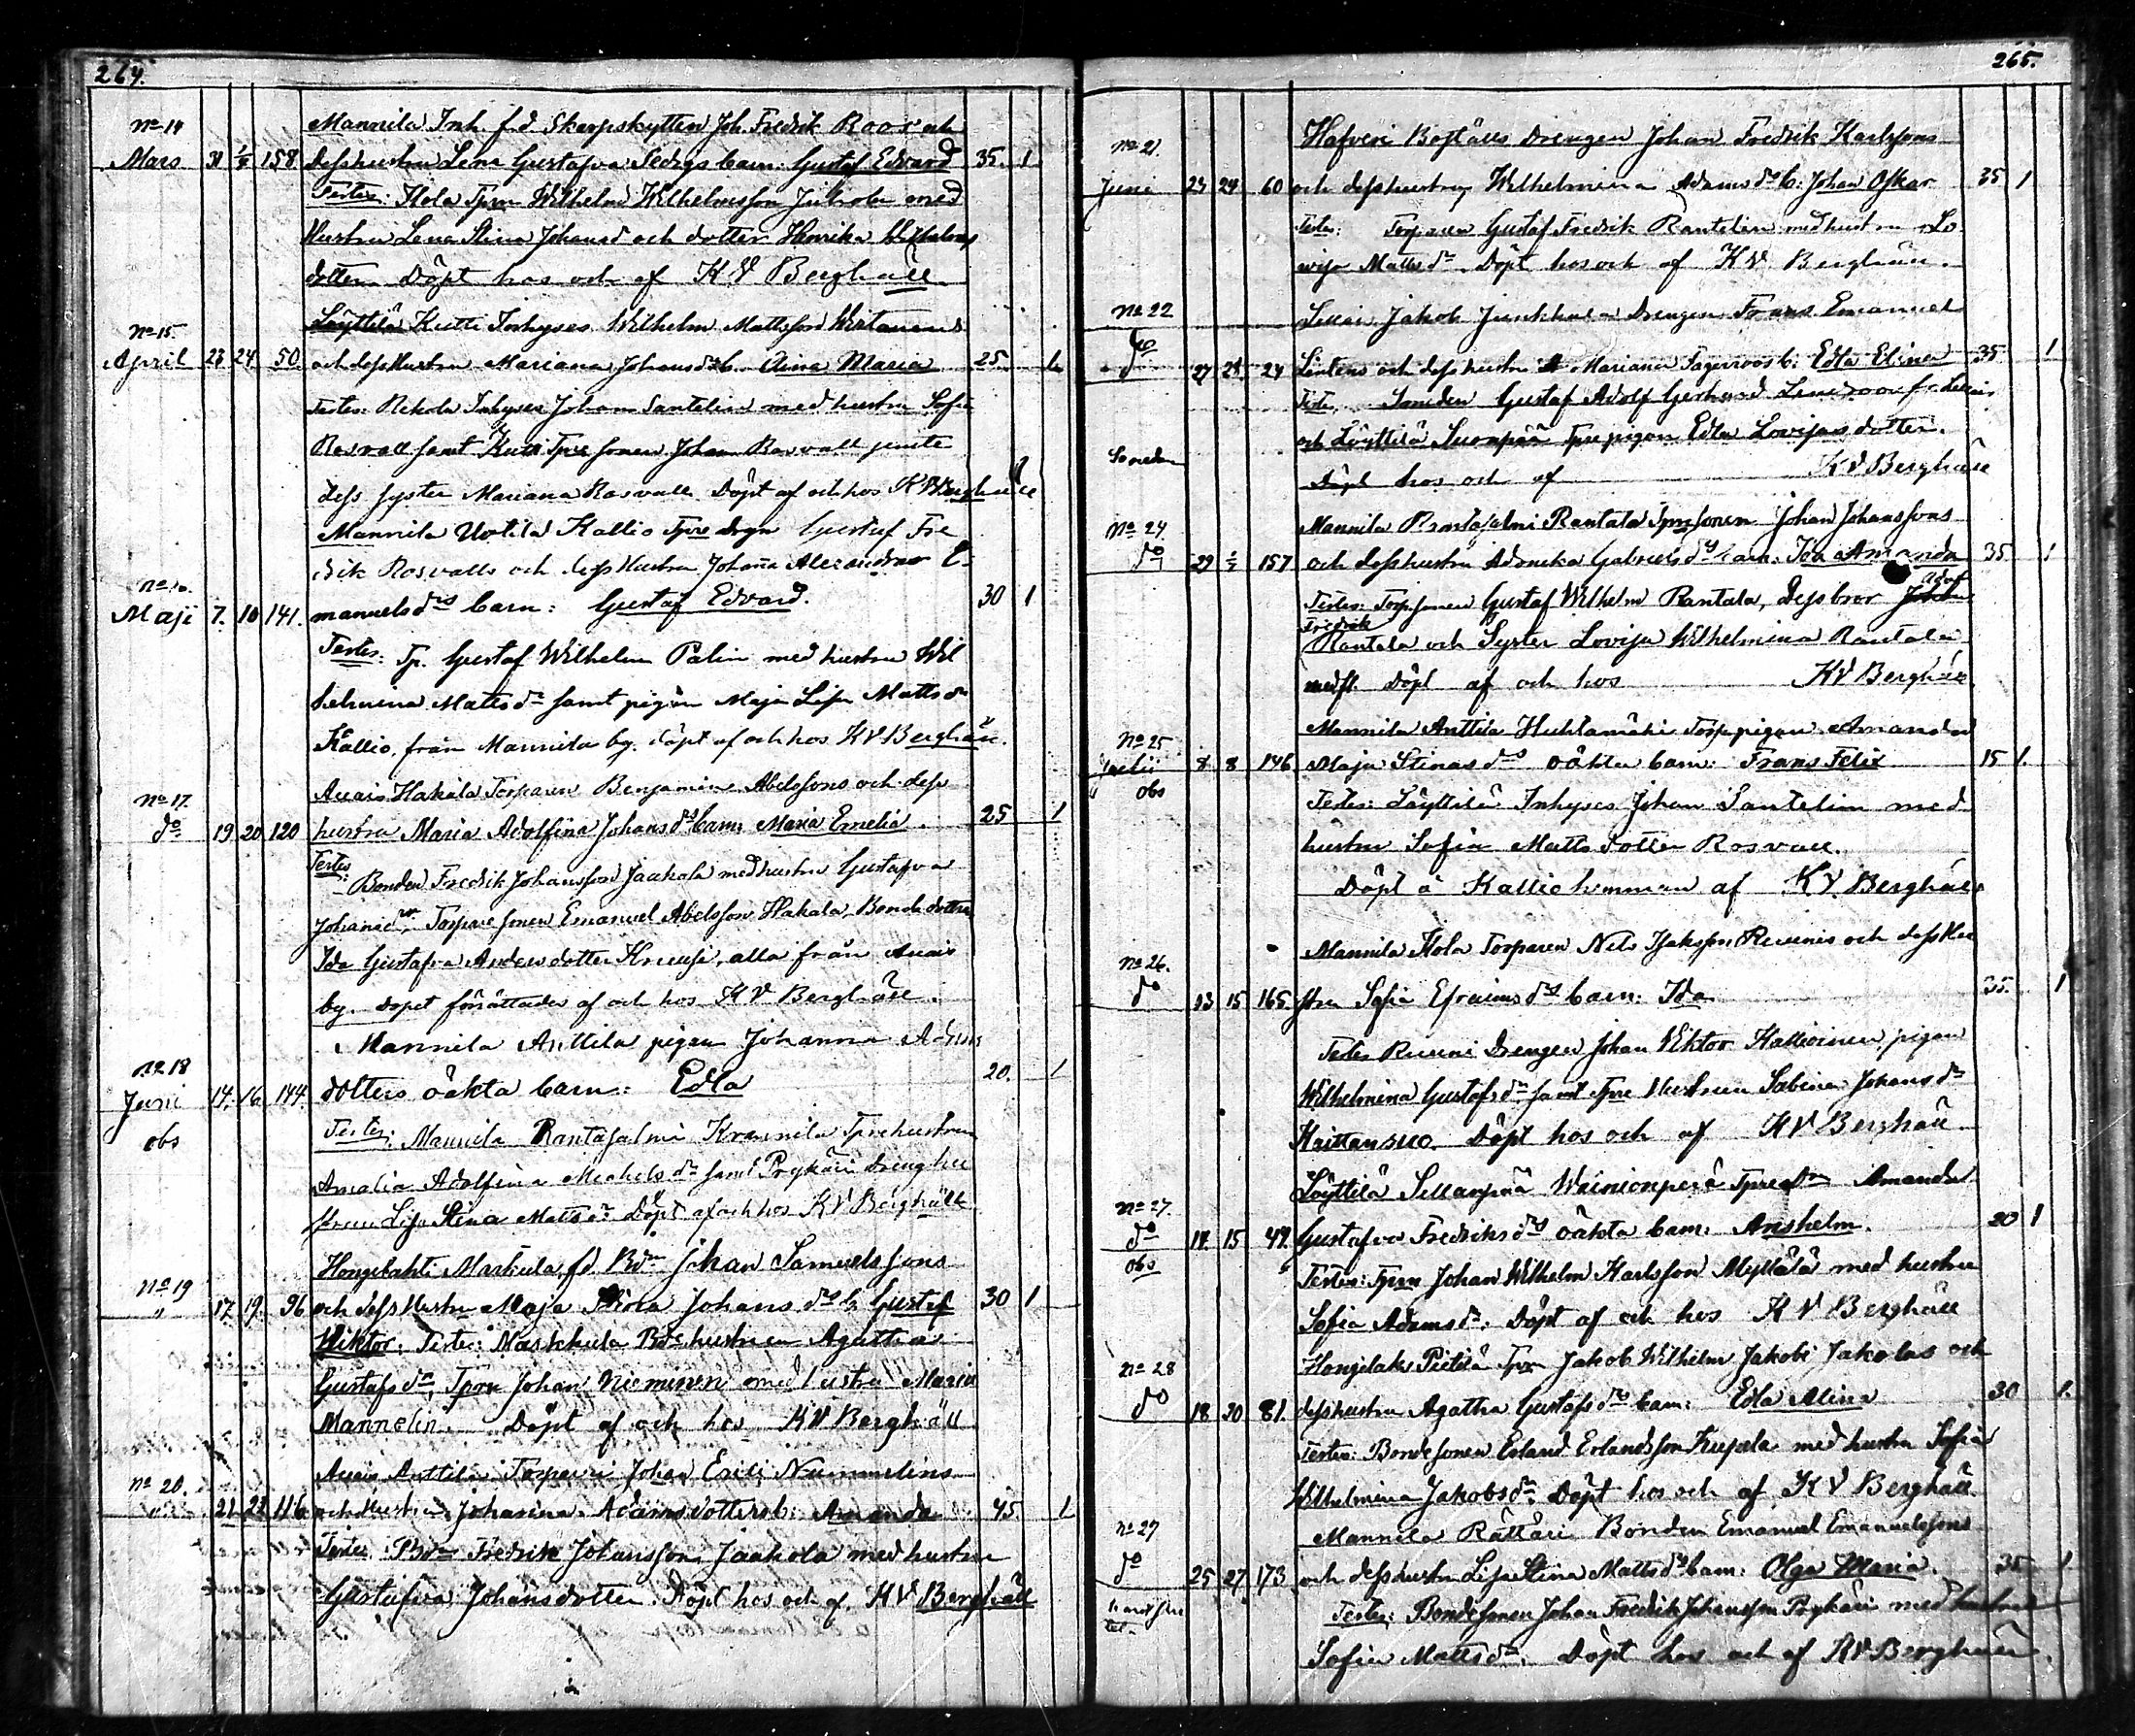 264.
No 14
Mannila Inh. f.d Skarpskytten Joh. Fredrik Roos och
Mars 31 158 dess hustru Lena Gustafva barn: Gustaf Edvard 35. 1
Testes: Tprn Wilhelm Wilhelmsson med
Hustru Lena Stina Johansd och dotter Henrika Wilhelms
dotter Döpt hos och af K V Berghäll
No 15.
Löyttilä Kutti Inhyses Wilhelm Mattsson Wirtanens
April 23 24 50. och dess Hustru Mariana Johans ds b. Aina Maria 25. 1
Testes: Rekola Inhyses Johan Santelin med hustru Sofia
Rosvall samt Kutti Tpre sonen Johan Rosvall jemte
dess syster Mariana Rosvall Döpt af och hos K V Berghäll
Mannila Uotila Kallio Tpre drgn Gustaf Fre
drik Rosvalls och dess Hustru Johanna Alexandra E
Maji 7. 10 141. manuels ds barn: Gustaf Edvard. 30 1
Testes: Tp. Gustaf Wilhelm Palin med hustru Wil
helmina Mattsdr samt pigan Maja Lisa Mattsdr
Kallio, från Mannila by. döpt af och hos K V Berghäll.
Auais Hakala Torparen Benjamin Abelssons och dess
No 17.
do 19 20 120 hustru Maria Adolfina Johans ds barn Maria Emelia. 25 1
Testes:
Bonden Fredrik Johansson Jaakola med hustru Gustafva
Johansdr, Torpare sonen Emanuel Abelsson Hakala, Bonde dottren
Ida Gustafva Andersdotter, alla från Auais
by. Dopet förrättades af och hos K V Berghäll.
Mannila Anttila pigan Johanna Adams
No 18
Juni 14. 16. 144. dotters oäkta barn: Edla 20. 1
obs
Testes: Mannila Rantasalmi Krannila Tprehustrun
Amalia Adolfina Michelsdr samt Prykäri Dreng hu
strun Lisa Stina Mattsdr Döpt af och hos K V Berghäll
Hongilahti Markula fd Bdn Johan Samuelssons
No 19
" 17. 19. 96 och dess Hustru Maja Stina Johans ds b. Gustaf 30 1
Wiktor. Testes: Markkula Bdehustrun Agatha
Gustafsdr, Tprn Johan Nieminen med hustru Maria
Mannelin. Döpt af och hos K V Berghäll
Auais Anttila Torparen Johan Erici Nummelins
No 20.
21 23 116 och Hustru Johanna Adamsdotters b: Amanda 45. 1
Testes: Bdn Fredrik Johansson Jaakola med hustru
Gustafva Johansdotter. Döpt hos och af K V Berghäll
265.
Hafveri Boställs Drengen Johan Fredrik Karlssons
No 21.
Juni 23 24 60 och dess hustru Wilhelmina Adams ds b: Johan Oskar 35 1
Testes: Torparen Gustaf Fredrik Rantelin med hustru Lo
visa Mattsdr. Döpt hos och af K V Berghäll.
No 22
Jakob Drengen Frans Emanuel
do 27 28. 24 Linteus och dess hustru Mariana Fagerroos b: Edla Elina 35 1
Testes. Smeden Gustaf Adolf Gerhard
och Löyttilä Suonpää Tpre pigan Edla Lovisasdotter.
Döpt hos och af K V Berghäll
No 24.
Mannila Rantasalmi Rantala Tpresonen Johan Johanssons
do 29 157 och dess hustru Gabriels ds barn: Ida Amanda 35 1
Testes: Torp.sonen Gustaf Wilhelm Rantala, Dess bror Adolf
Fredrik
Rantala och Syster Lovisa Wilhelmina Rantala
medfl. Döpt af och hos K V Berghäll
No 25
Mannila Anttila Huhtamäki Torp.pigan Amanda
Julii 8 8 146 Maja Stinas ds oäkta barn: Frans Felix 15 1.
" obs
Testes: Löyttilä Inhyses Johan Santelin med
hustru Sofia Mattsdotter Rosvall.
Döpt å Kallio hemman af K V Berghäll
Mannila Torparen Nils Isaksson och dess Hu
No 26.
do 13 15 165. stru Sofia Efraims ds barn: Ida 35. 1
Testes Drengen Johan Viktor Kallioinen, pigan
Wilhelmina Gustafsdr samt Tpre Hustrun Sabina Johansdr
Döpt hos och af K V Berghäll
Löyttilä Sillanpää Wainionperä Tpredr Amanda
No 27.
do 14. 15 49. Gustafva Fredriks ds oäkta barn: Anshelm. 20 1
obs
Testes: Tprn Johan Wilhelm Karlsson Myllälä med hustru
Sofia Adamsdr. Döpt af och hos K V Berghäll
No 28
Hongilaks Pietilä Tpr Jakob Wilhelm Jakobi Jakolas och
do 18 20 81. dess hustru Agatha Gustafs ds barn: Edla Alina 30 1.
Testes: Bondesonen Erland Erlandsson Kupila med hustru Sofia
Wilhelmina Jakobsdr. Döpt hos och af K V Berghäll.
No 29
Mannila Rättäri Bonden Emanuel Emanuelssons
do 25 27 173 och dess hustru Lisa Stina Matts ds barn: Olga Maria. 35. 1
Testes: Bondesonen Johan Fredrik Johansson Prykäri med hustru
Sofia Mattsdr. Döpt hos och af K V Berghäll.